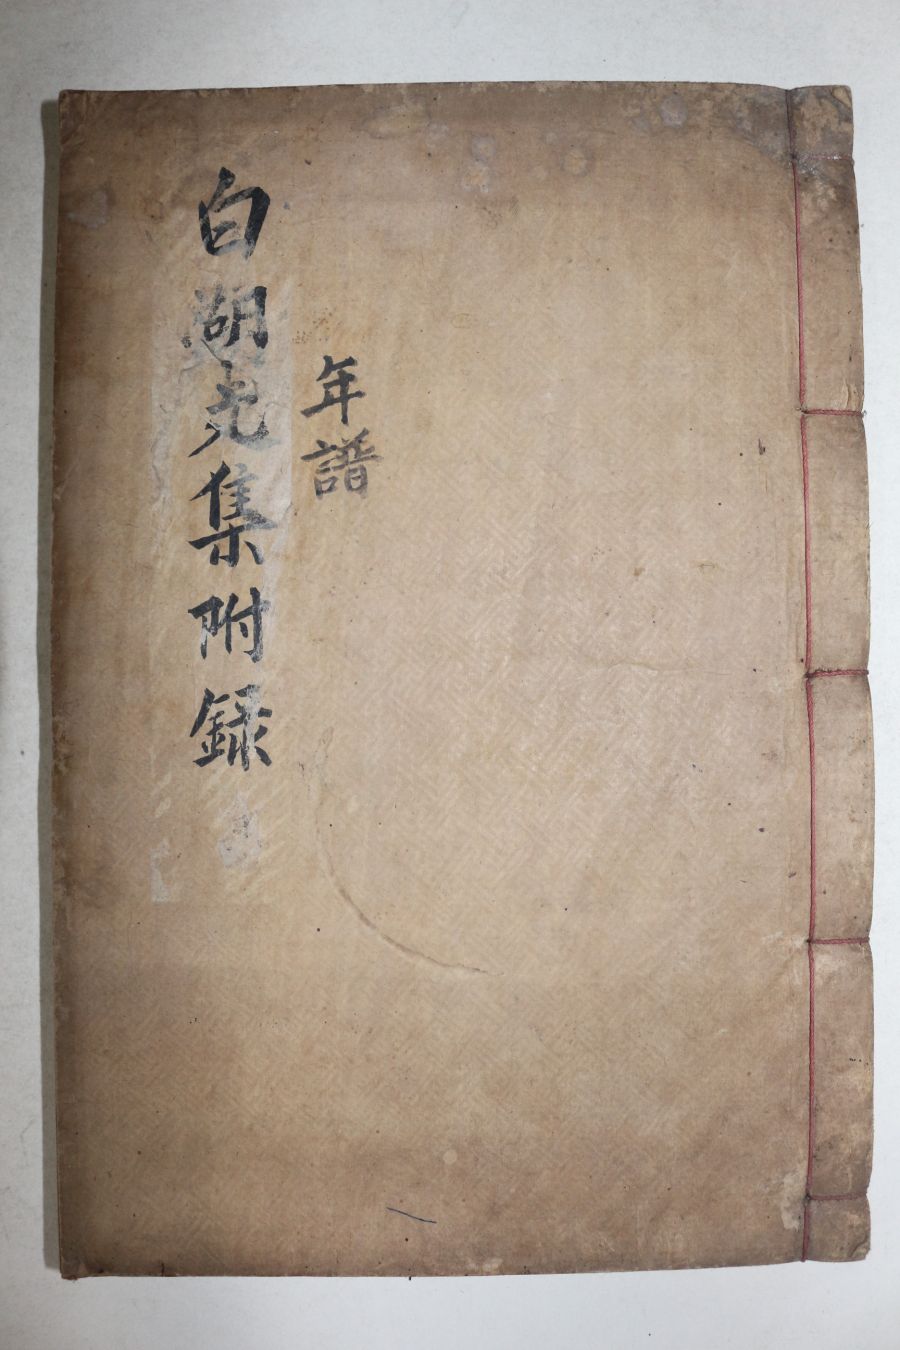 白湖先集附錄
年譜